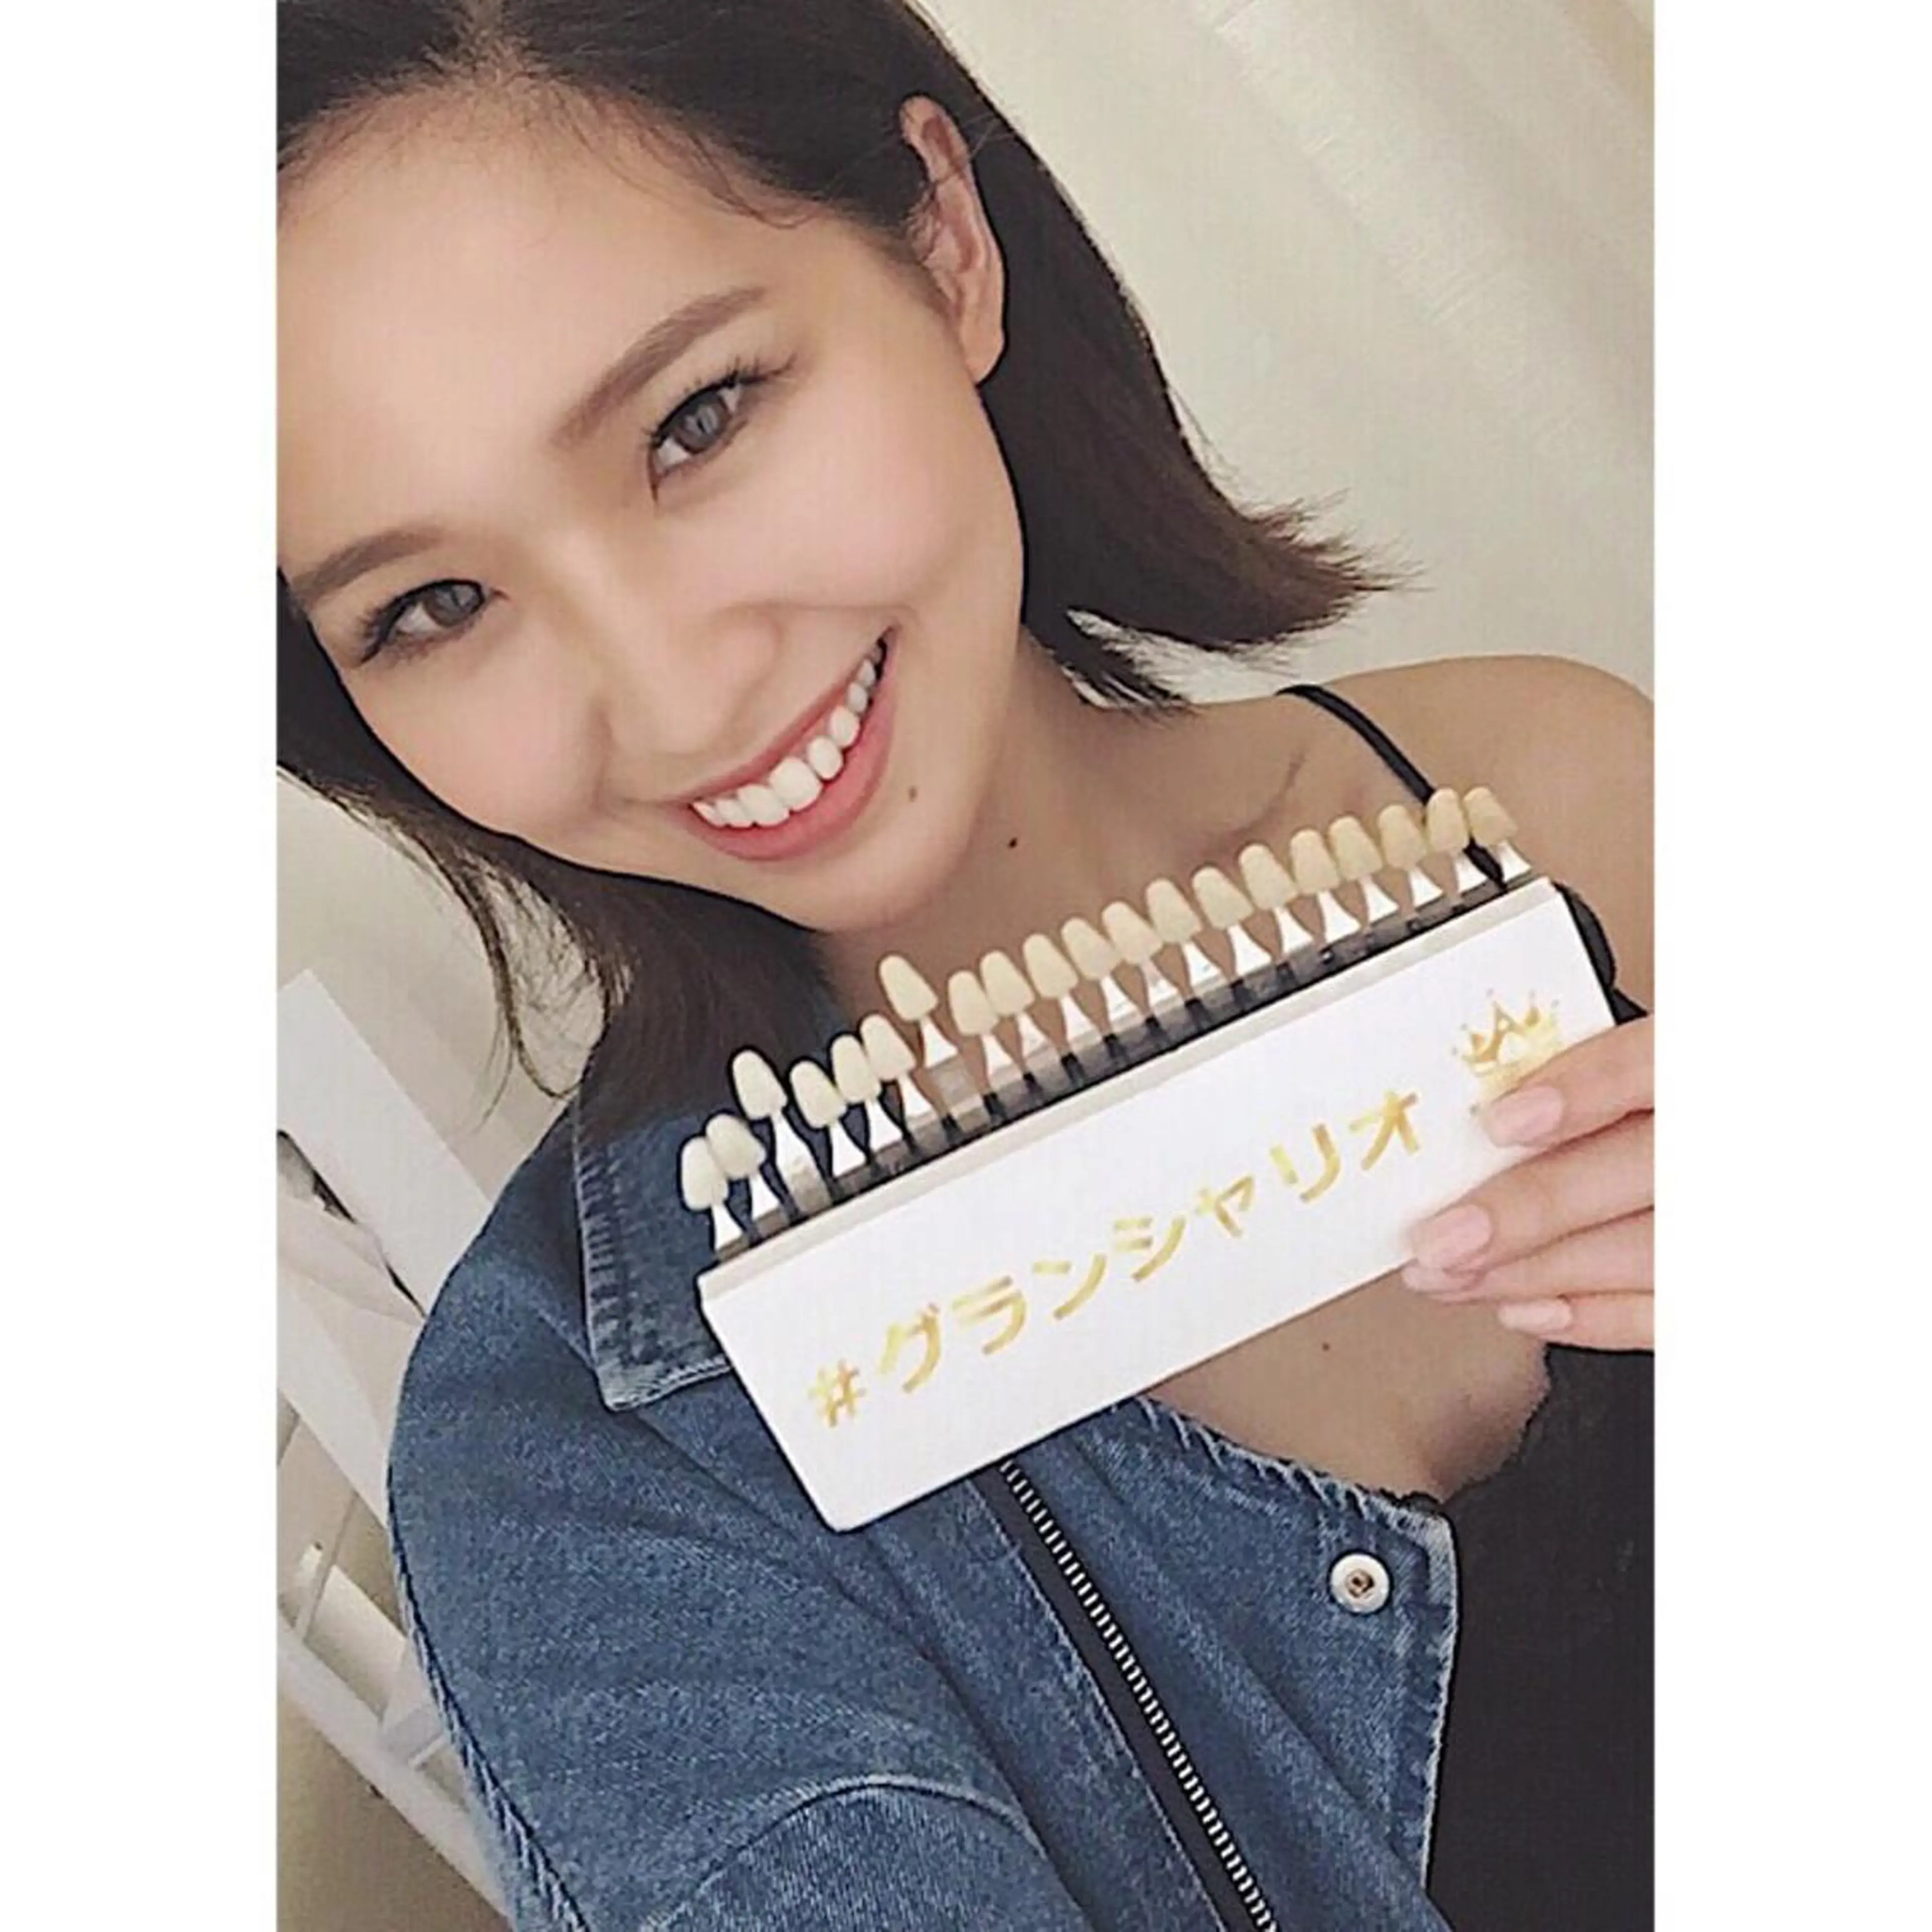 #グランシャリオ